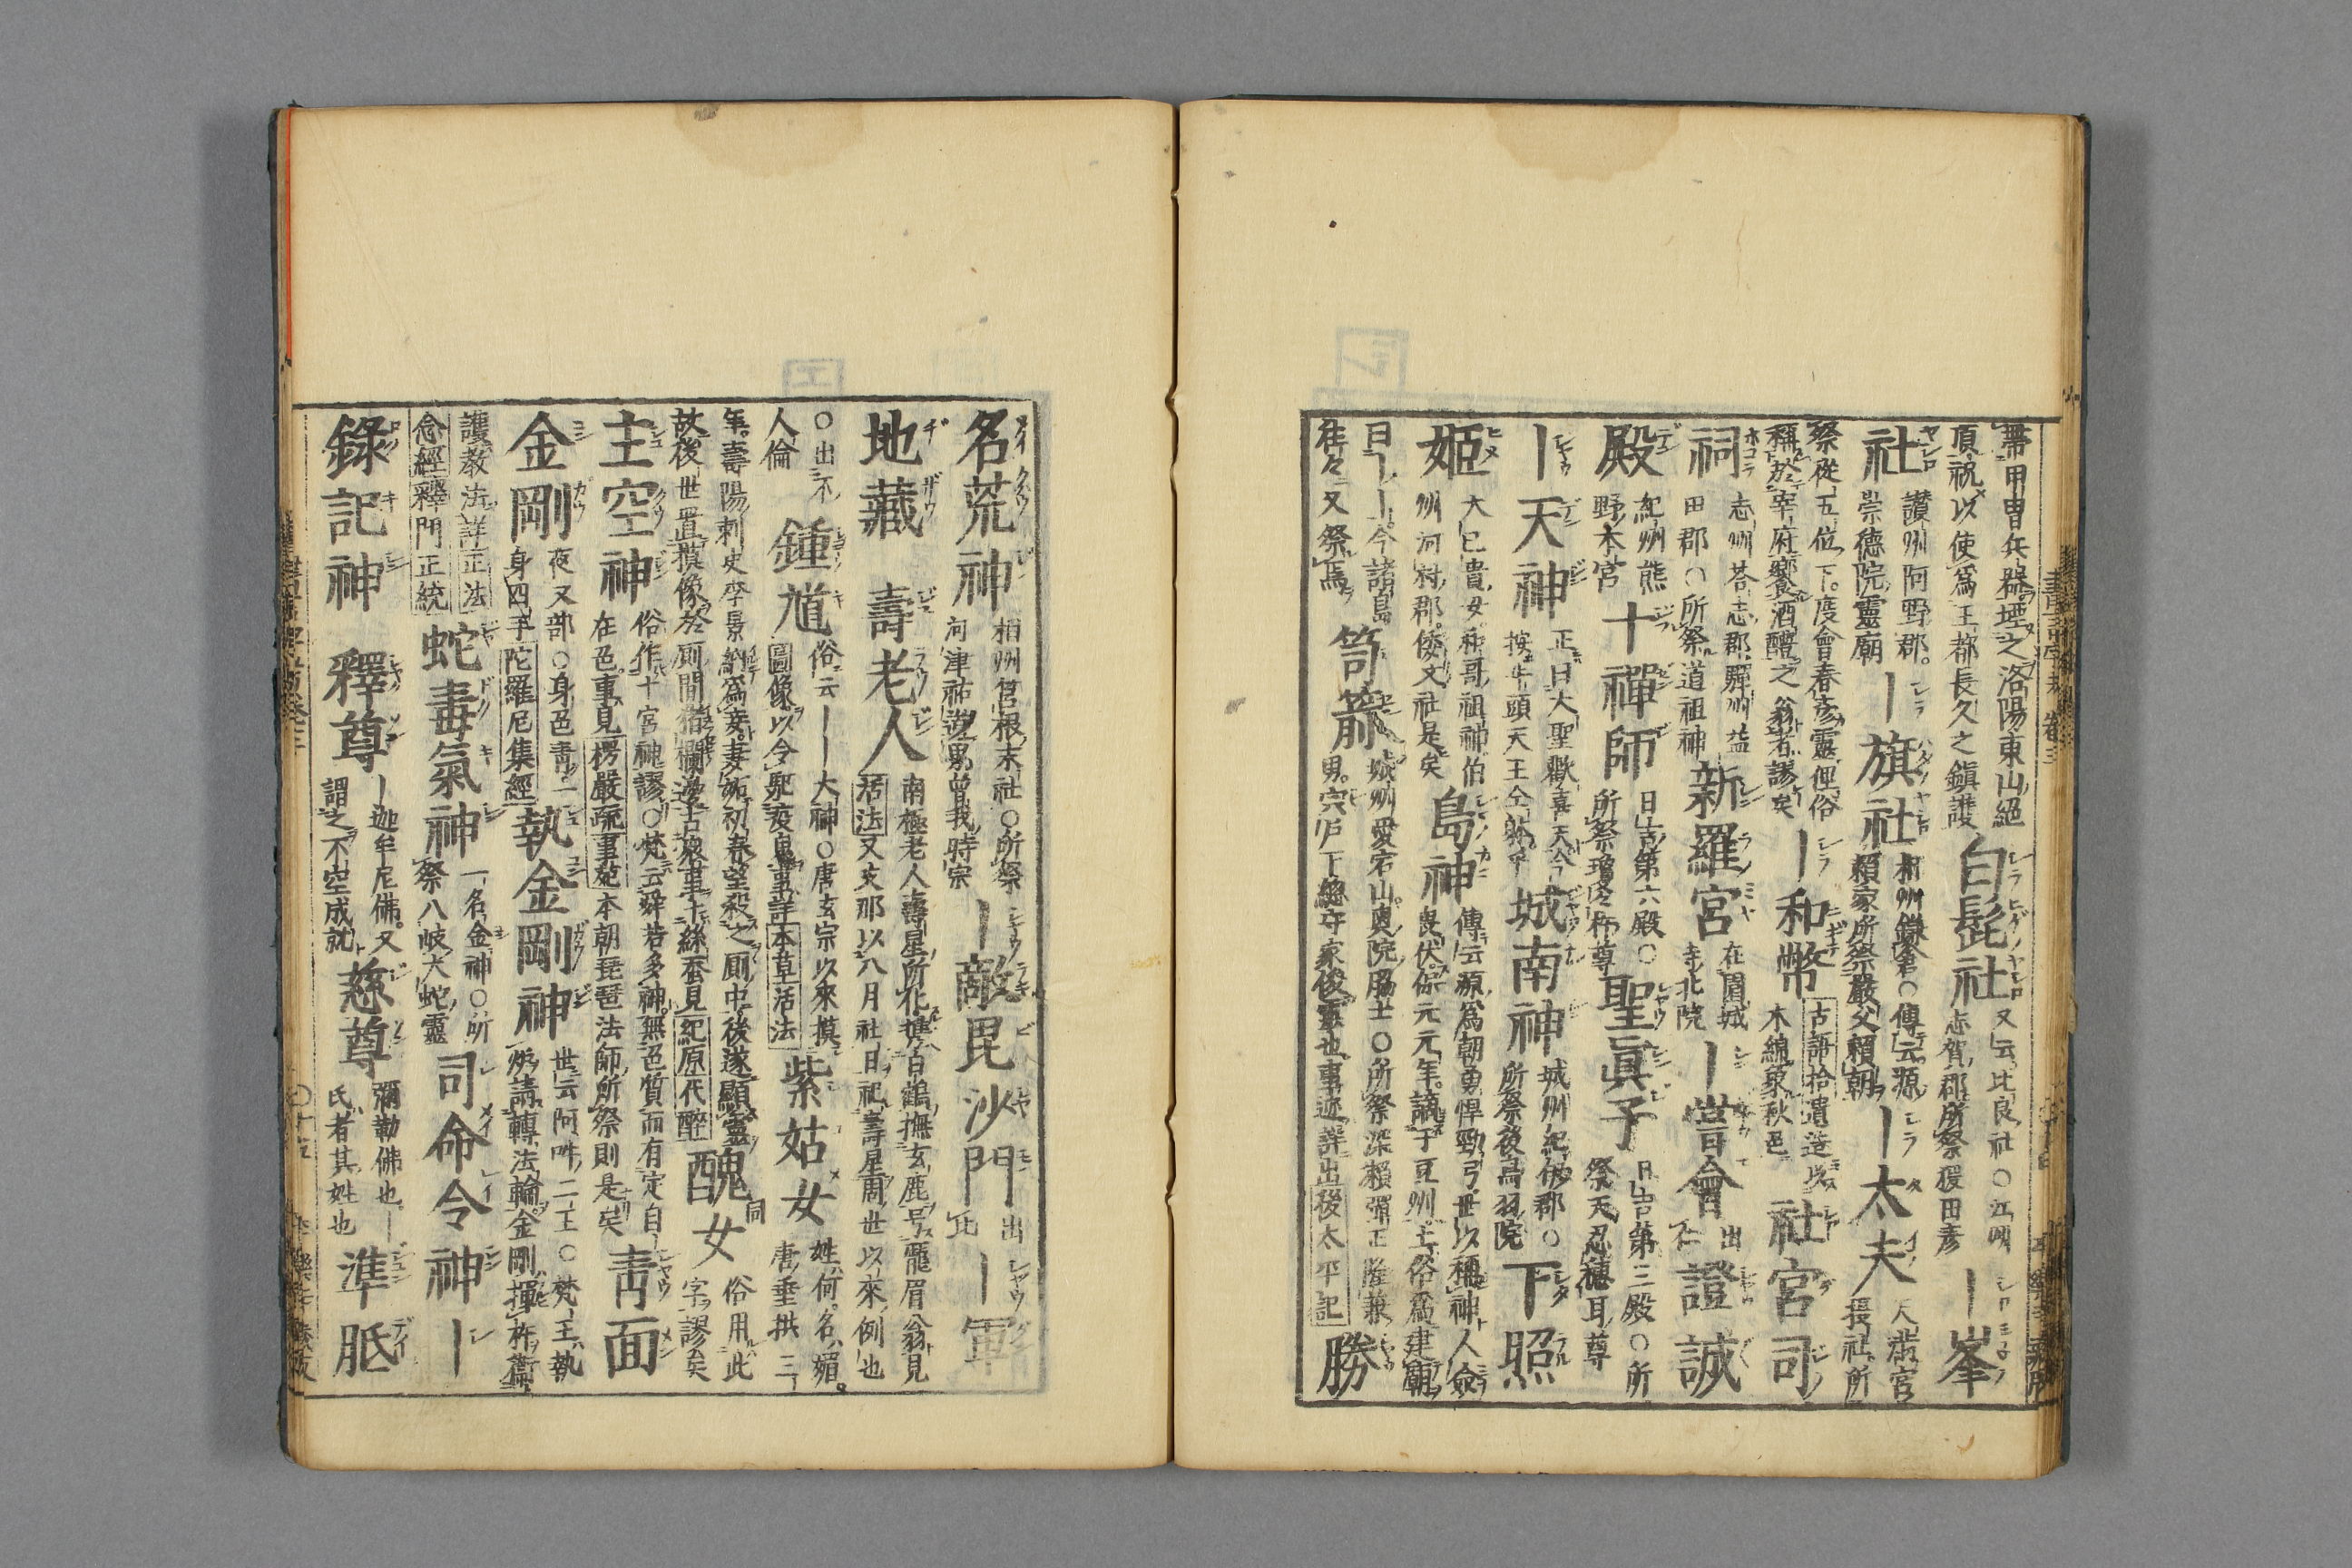 帶甲冑兵器埋之洛陽東山絕
頂祝以使爲王都長久之鎮護
白髭社
又云比良社〇江州
志賀郡所祭猨田彦
｜峯
社
讃州阿野郡
崇德院靈廟
｜旗社
相州鎌倉〇傳云源
賴家所祭嚴父賴朝
｜太夫
天滿宮
接社所
祭從五位下度會春彦靈俚俗
稱於宰府饗酒醴之翁者謬矣
｜和幣
古語拾遺造以
木綿象秋色
社宮司
祠
志州荅志郡
田郡〇所祭道祖神
新羅宮
在園城
寺北院
｜嘗會
出
證誠
殿
紀州熊
野本宮
十禪師
日吉第六殿〇
所祭瓊々杵尊
聖眞子
日吉第三殿〇所
祭天忍穗耳尊
｜天神
正曰大聖歡喜天今
按牛頭天王仝躰乎
城南神
城州紀伊郡〇
所祭後鳥羽院
下照
姬
大巳貴女稚哥祖神伯
州河村郡倭文社是矣
島神
傳云源爲朝勇悍勁弓世以稱神人僉
畏伏保元元年謫于豆州土俗爲建廟
曰｜｜今諸島
往々又祭焉
笥箭
城州愛宕山奥院脇士〇所祭深賴彈正隆兼
男宍戶下總守家俊靈也事迹詳出後太平記
勝
名荒神
相州筥根末社〇所祭
河津祐說男曾我時宗
｜敵毘沙門
出
｜軍
地藏
壽老人
南極老人壽星所化携白鶴撫玄鹿号龎眉翁見
活法又支那以八月社日祀壽星周世以來例也
〇出不
人倫
鍾馗
俗云｜｜大神〇唐玄宗以來摸
圖像以令駈疫鬼事詳本草活法
紫姑女
姓何名媚
唐垂拱三｜
年壽陽刺史李景納爲妾妻妬初春望殺之厠中後遂顯靈
故後世置摸像於厠間猪欄邊占衆事卜絲蚕見紀原代醉
醜女
同
俗用此
字謬矣
主空神
俗作十宮神謬〇梵云舜若多神無色質而有定自｜
在色事見楞嚴疏事苑本朝琵琶法師所祭則是矣
靑面
金剛
夜叉部〇身色靑一
身四手陀羅尼集經
執金剛神
世云阿吽二王〇梵王執
爐請轉法輪金剛揮杵衞
護教法詳正法
念經釋門正統
蛇毒氣神
一名金神〇所
祭八岐大蛇靈
司命令神｜
錄記神
釋尊
｜迦牟尼佛又
謂之不空成就
慈尊
彌勒佛也｜
氏者其姓也
準胝